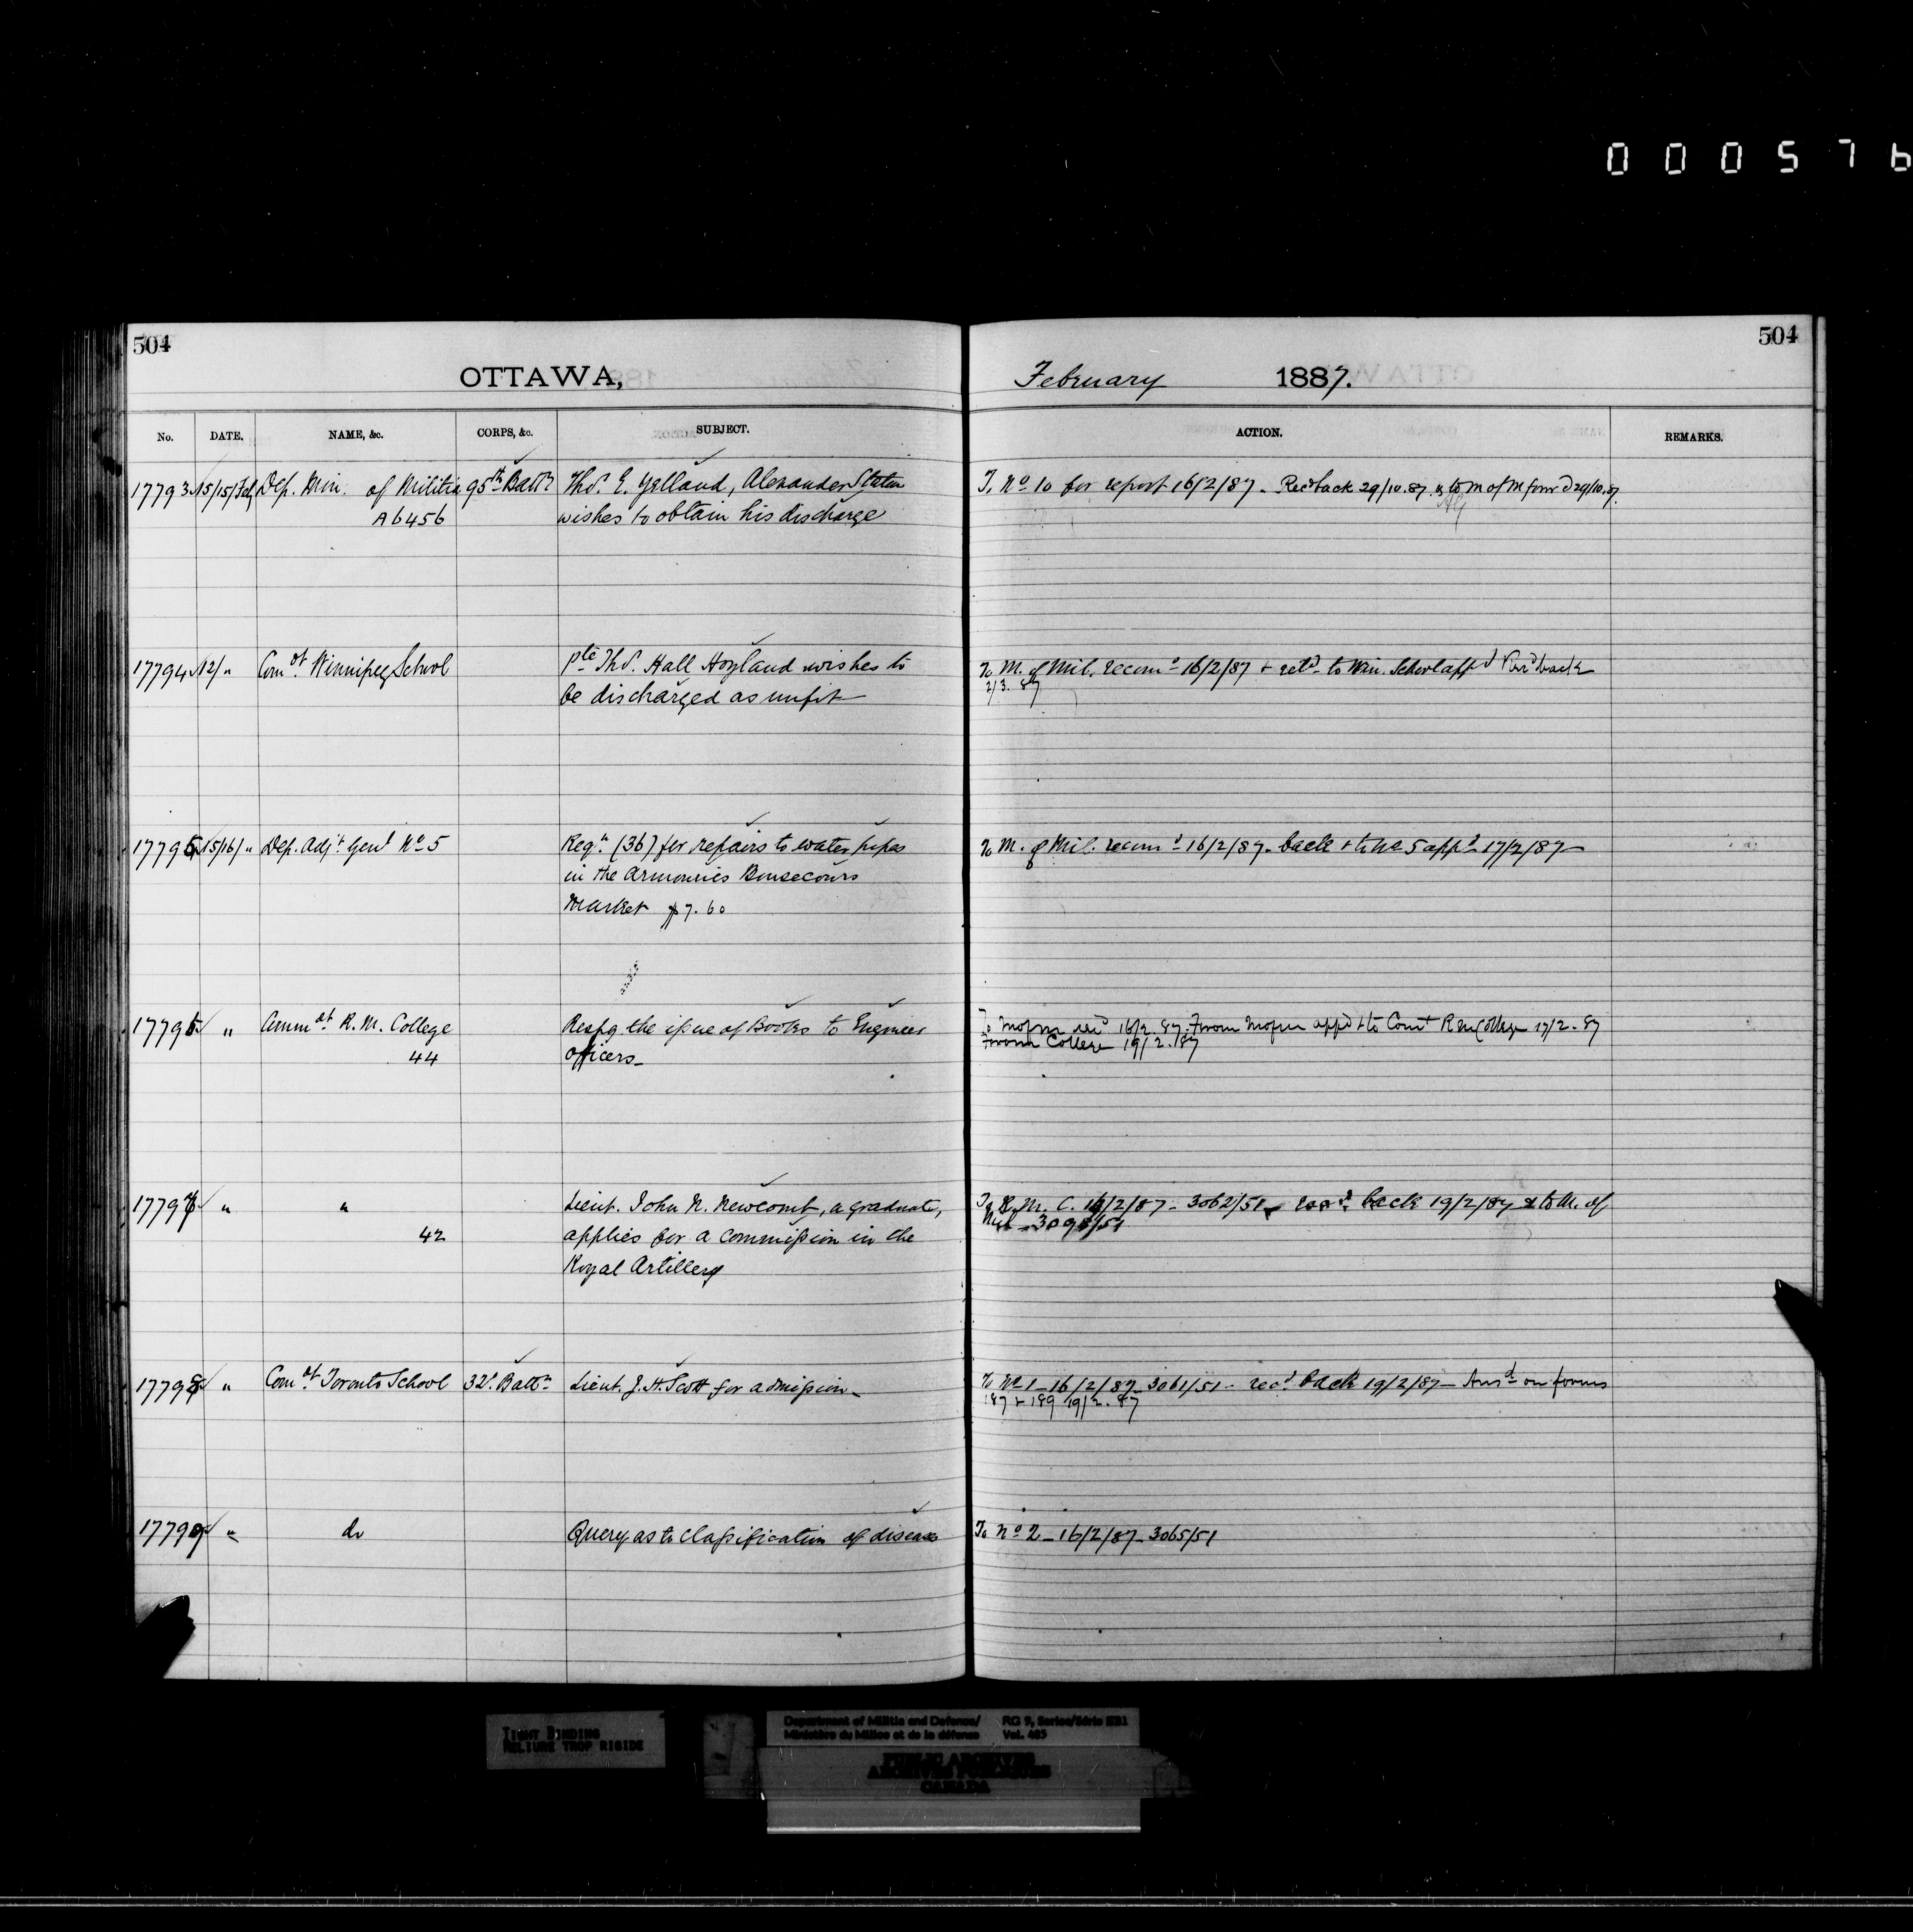 000576
504
504
OTTAWA,
February 1887.
No. DATE. NAME, &c. CORPS, &c. SUBJECT. ACTION. REMARKS.
17793 15/15/Feb Dep. Min. of Militia 95th Battn Thos. E. Yelland, Alexander Station To No 10 for report 16/2/87 - Recd back 29/10.87 & to M of M forwd 29/10.87.
A6456 wishes to obtain his discharge
17794 12/ " Comdt Winnipeg School Pte Thos. Hall Hoyland wishes to To M. of Mil. recomd 16/2/87 + retd to Win. School appd back
be discharged as unfit 2/3.87
17795 15/16/ " Dep. Adjt Genl No 5 Reqn (36) for repairs to water pipes To M. of Mil. recomd 16/2/87 - back + to No 5 appd 17/2/87
in the armouries Bonsecours
Market $7.60
17796 " Commdt R. M. College Respg the issue of Books to Engineer To Mofm 16/2.87. From Mofm appd + to Comt R M College 17/2.87
44 officers - From College 19/2.87
17797 " " Lieut. John N. Newcomb, a graduate, To R. M. C. 16/2/87 - 3062/51 - recd back 19/2/87 & to M. of
42 applies for a commission in the Mil - 3098/51
Royal Artillery
17798 " Comdt Toronto School 32d. Battn Lieut. J. H. Scott for admission - To No 1 - 16/2/87 - 3061/51 - recd back 19/2/87 - Ansd on forms
187 + 189 19/2.87
17799 " do Query as to classification of diseases To No 2 - 16/2/87 - 3065/51
TIGHT BINDING
RELIURE TROP RIGIDE
Department of Militia and Defence/ RG 9, Series/Série IIB1
Ministère du Milice et de la défense Vol. 405
PUBLIC ARCHIVES
ARCHIVES PUBLIQUES
CANADA